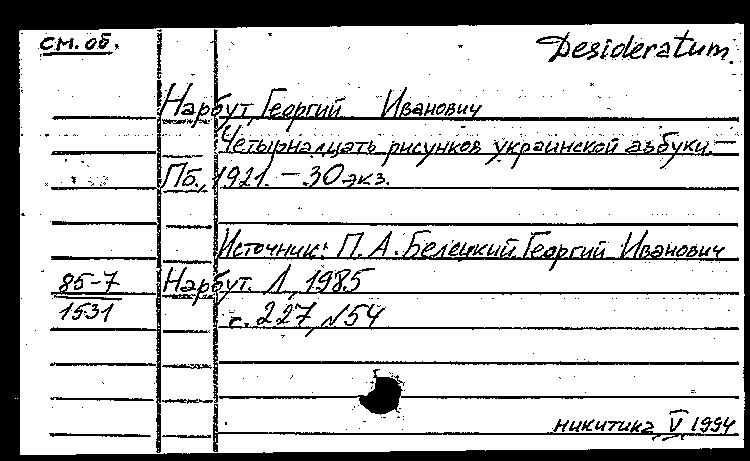 см. об.
Desideratum.
Нарбут, Георгий Иванович
Четырнадцать рисунков украинской азбуки. —
Пб., 1921. — 30 экз.
Источник: П. А. Белецкий. Георгий Иванович
85-7
Нарбут. Л., 1985
1531
с. 227, №54
никитина, V, 1994